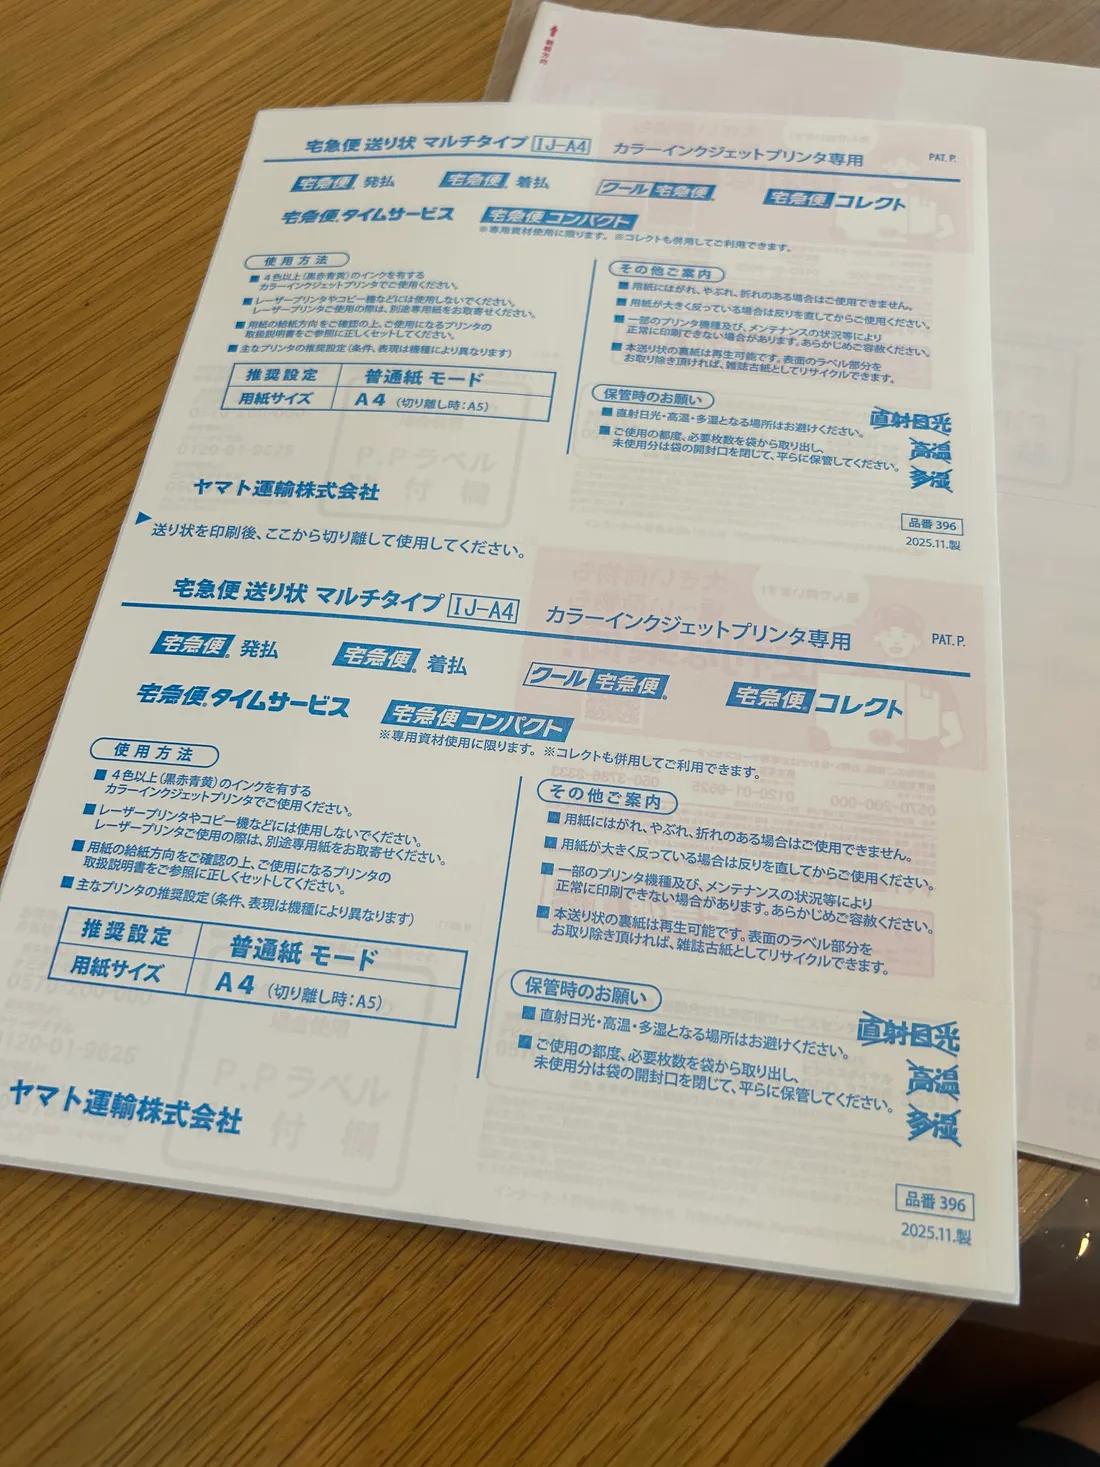 給紙方向
宅急便 送り状 マルチタイプ IJ-A4 カラーインクジェットプリンタ専用 PAT. P.
宅急便 発払 宅急便 着払 クール宅急便 宅急便コレクト
宅急便タイムサービス 宅急便コンパクト
※専用資材使用に限ります。 ※コレクトも併用してご利用できます。
使用方法
■ 4色以上(黒赤青黄)のインクを有する
カラーインクジェットプリンタでご使用ください。
■ レーザープリンタやコピー機などには使用しないでください。
レーザープリンタご使用の際は、別途専用紙をお取寄せください。
■ 用紙の給紙方向をご確認の上、ご使用になるプリンタの
取扱説明書をご参照に正しくセットしてください。
■ 主なプリンタの推奨設定(条件、表現は機種により異なります)
推奨設定 普通紙 モード
用紙サイズ A4 (切り離し時:A5)
ヤマト運輸株式会社
その他ご案内
■ 用紙にはがれ、やぶれ、折れのある場合はご使用できません。
■ 用紙が大きく反っている場合は反りを直してからご使用ください。
■ 一部のプリンタ機種及び、メンテナンスの状況等により
正常に印刷できない場合があります。あらかじめご容赦ください。
■ 本送り状の裏紙は再生可能です。表面のラベル部分を
お取り除き頂ければ、雑誌古紙としてリサイクルできます。
保管時のお願い
■ 直射日光・高温・多湿となる場所はお避けください。
■ ご使用の都度、必要枚数を袋から取り出し、
未使用分は袋の開封口を閉じて、平らに保管してください。
直射日光
高温
多湿
品番 396
2025.11.製
▶送り状を印刷後、ここから切り離して使用してください。
宅急便 送り状 マルチタイプ IJ-A4 カラーインクジェットプリンタ専用 PAT. P.
宅急便 発払 宅急便 着払 クール宅急便 宅急便コレクト
宅急便タイムサービス 宅急便コンパクト
※専用資材使用に限ります。 ※コレクトも併用してご利用できます。
使用方法
■ 4色以上(黒赤青黄)のインクを有する
カラーインクジェットプリンタでご使用ください。
■ レーザープリンタやコピー機などには使用しないでください。
レーザープリンタご使用の際は、別途専用紙をお取寄せください。
■ 用紙の給紙方向をご確認の上、ご使用になるプリンタの
取扱説明書をご参照に正しくセットしてください。
■ 主なプリンタの推奨設定(条件、表現は機種により異なります)
推奨設定 普通紙 モード
用紙サイズ A4 (切り離し時:A5)
ヤマト運輸株式会社
その他ご案内
■ 用紙にはがれ、やぶれ、折れのある場合はご使用できません。
■ 用紙が大きく反っている場合は反りを直してからご使用ください。
■ 一部のプリンタ機種及び、メンテナンスの状況等により
正常に印刷できない場合があります。あらかじめご容赦ください。
■ 本送り状の裏紙は再生可能です。表面のラベル部分を
お取り除き頂ければ、雑誌古紙としてリサイクルできます。
保管時のお願い
■ 直射日光・高温・多湿となる場所はお避けください。
■ ご使用の都度、必要枚数を袋から取り出し、
未使用分は袋の開封口を閉じて、平らに保管してください。
直射日光
高温
多湿
品番 396
2025.11.製